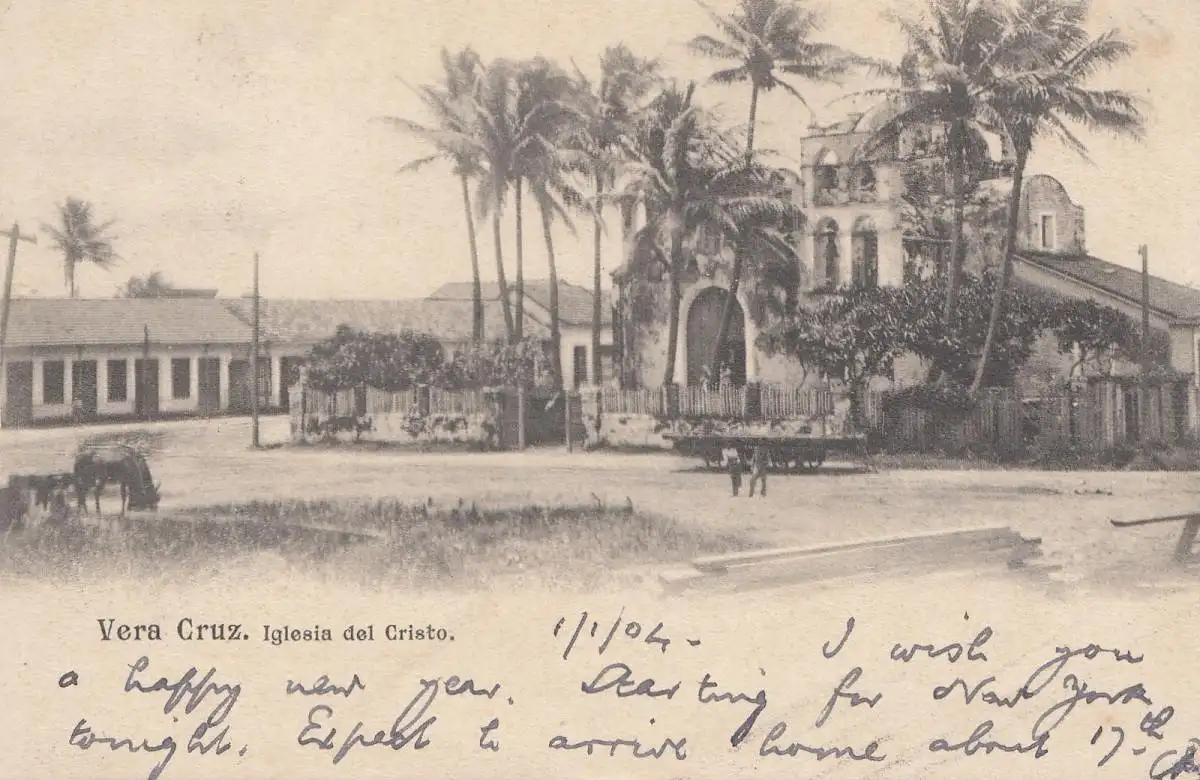 Vera Cruz. Iglesia del Cristo.
1/1/04 - I wish you
a happy new year. Starting for New York
tonight. Expect to arrive home about 17th